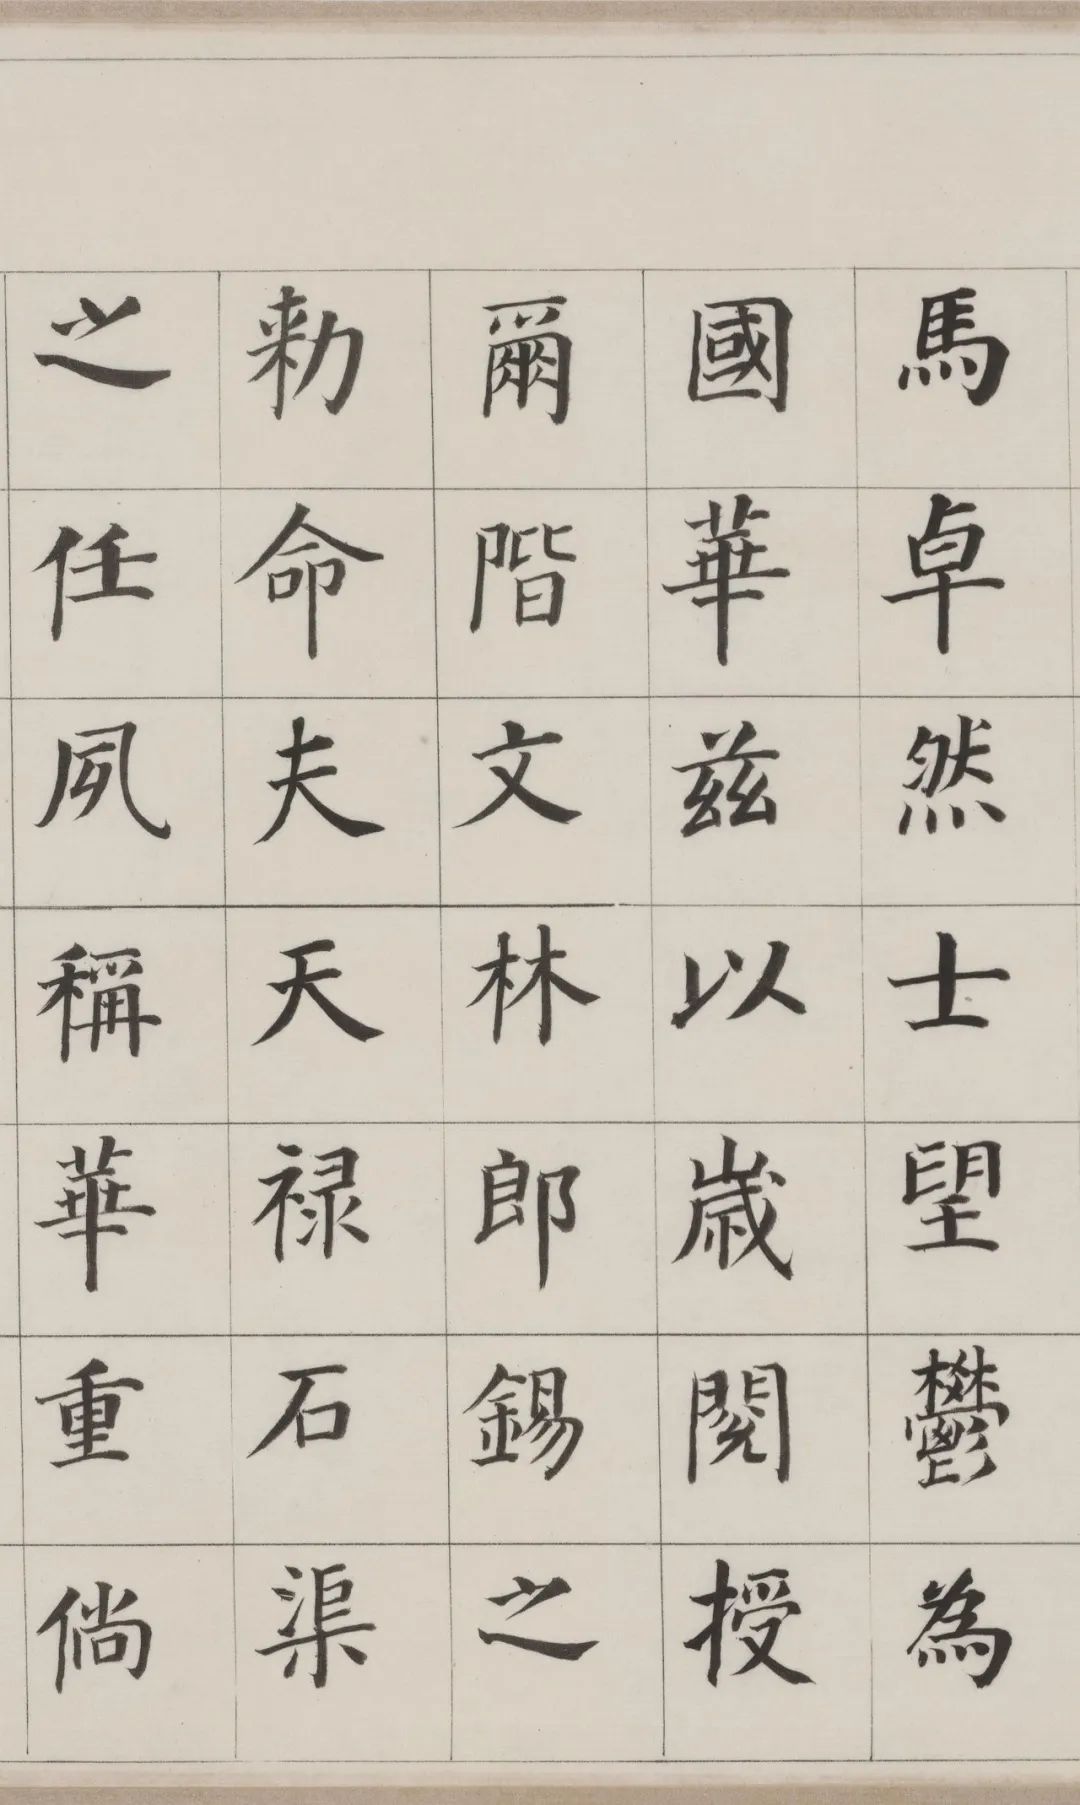 馬卓然士望鬱為
國華茲以歲閱授
爾階文林郎錫之
勑命夫天禄石渠
之任夙稱華重倘